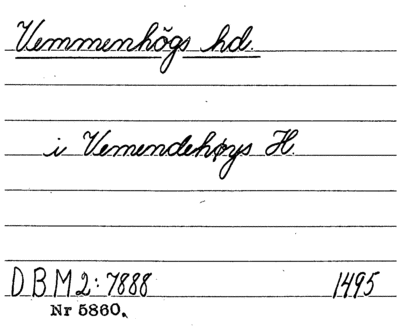 Vemmenhögs hd.
i Vemendehøys H.
DBM2: 7888 1495
Nr 5860.